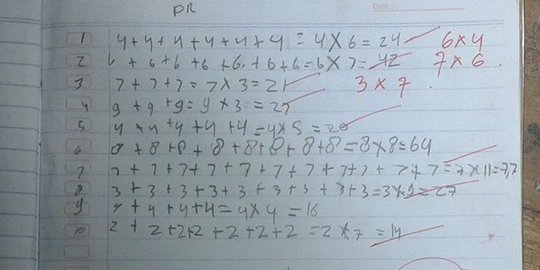 PR
Date:
1 4+4+4+4+4+4 = 4×6 = 24 6×4
2 6+6+6+6+6+6+6=6×7=42 7×6
3 7+7+7=7×3=21 3×7.
4 9+9+9=9×3=27
5 4+4+4+4+4=4×5=20
6 8+8+8+8+8+8+8+8=8×8=64
7 7+7+7+7+7+7+7+7+7+7+7=7×11=77
8 3+3+3+3+3+3+3+3+3=3×9=27
9 4+4+4+4=4×4=16
10 2+2+2+2+2+2+2=2×7=14